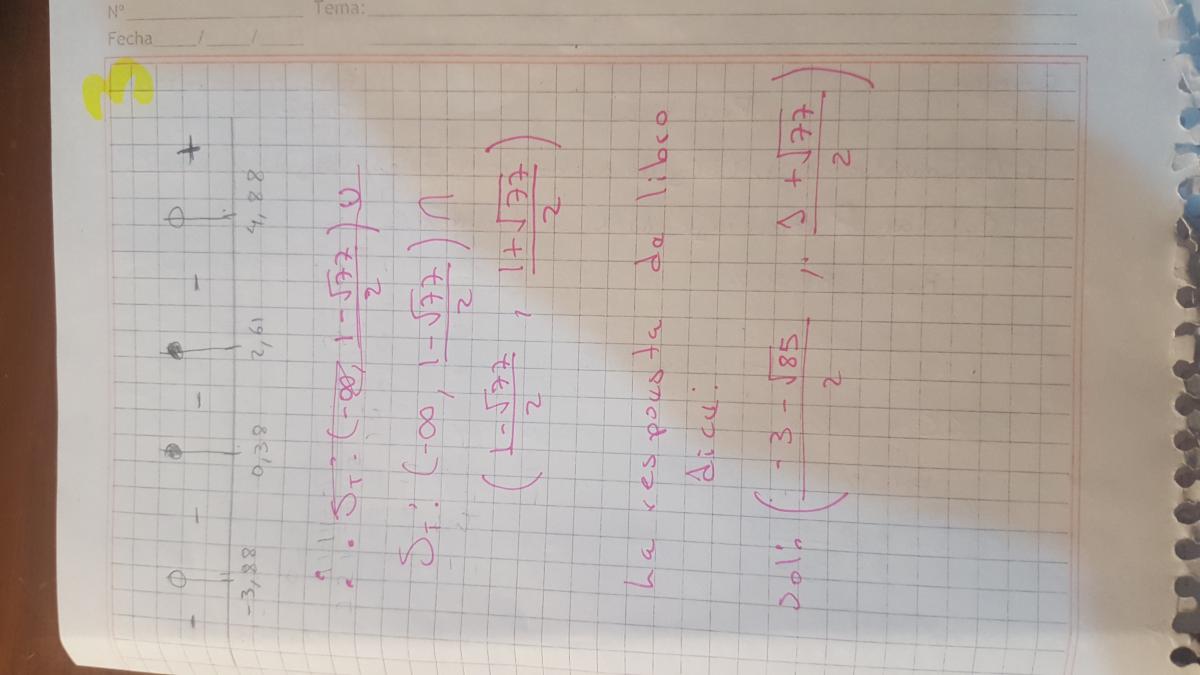 Nº Tema:
Fecha / /
3
- - - - +
-3,88 0,38 2,61 4,88
∴ S_T: (-∞, (1-√77)/2) ∪
S_T: (-∞, (1-√77)/2) ∩
((1-√77)/2 , (1+√77)/2)
La respousta da libro
Dicu:
Soln ((-3-√85)/2 ; + √77/2)